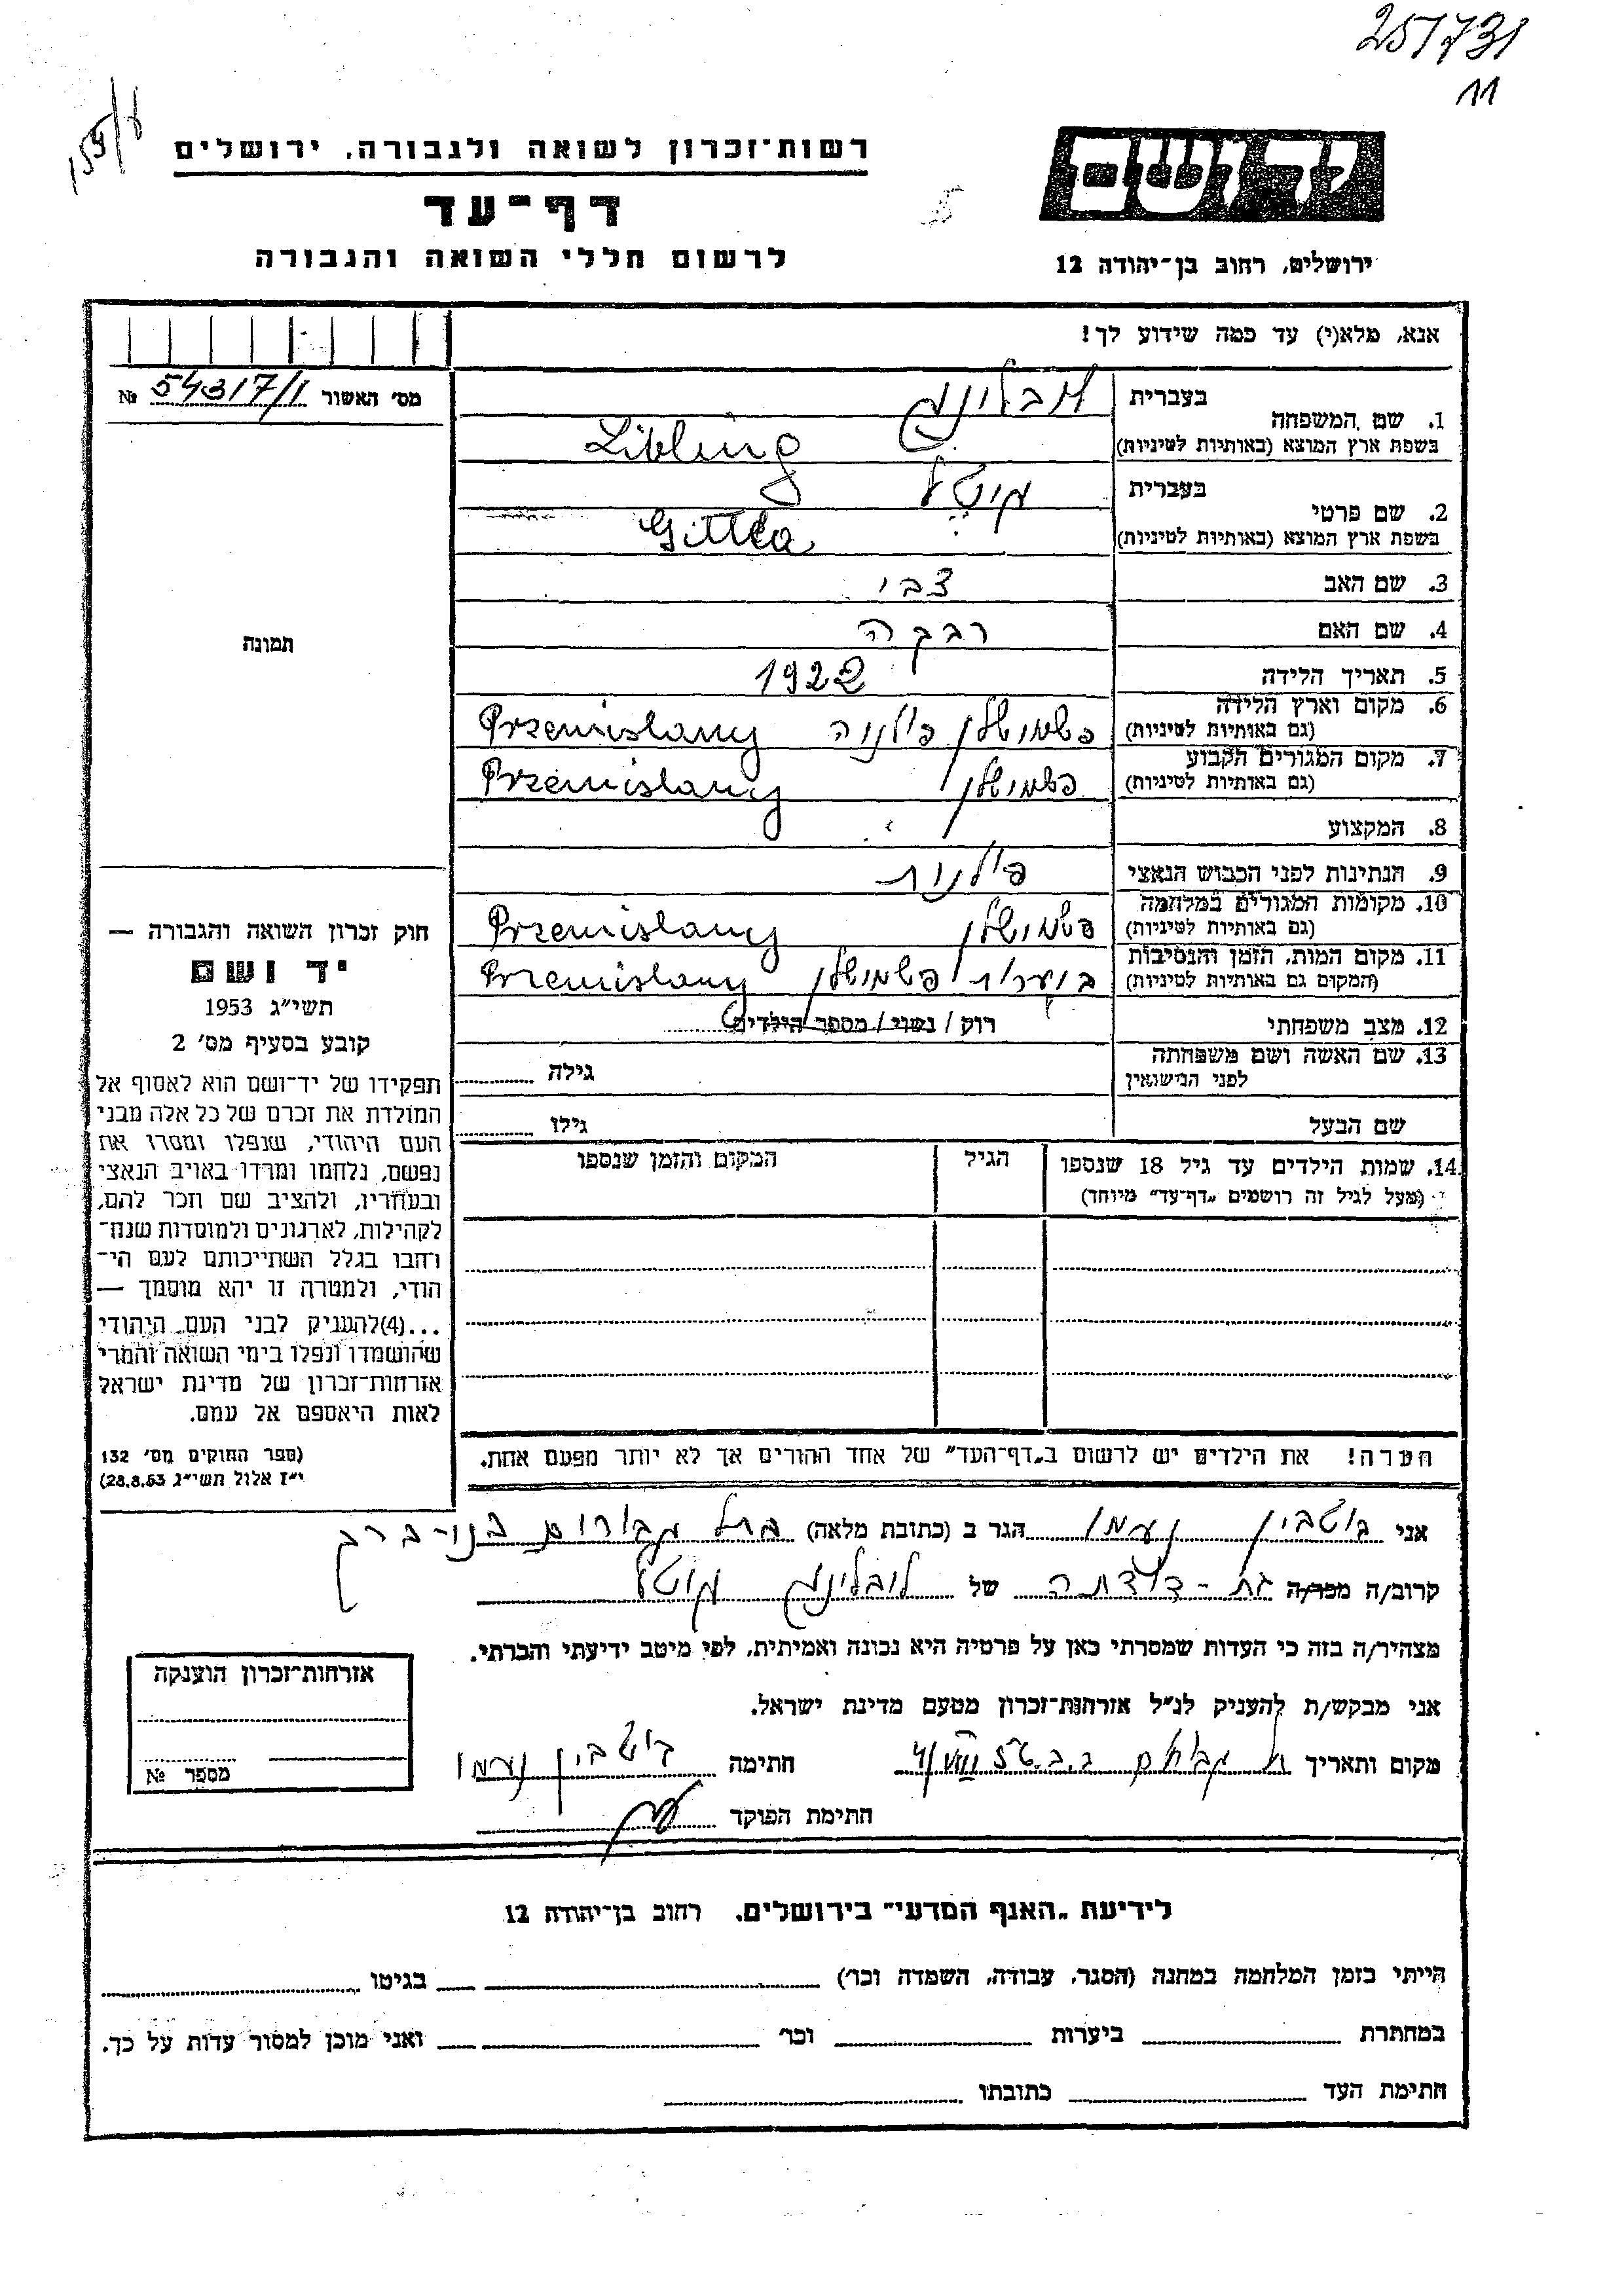 251731
11
רשות־זכרון לשואה ולגבורה, ירושלים
דף־עד
לרשום חללי השואה והגבורה
יד ושם
ירושלים, רחוב בן־יהודה 12
אנא, מלא(י) עד כמה שידוע לך!
מס׳ האשור 54317/1 №
תמונה
1. שם המשפחה
בעברית
בשפת ארץ המוצא (באותיות לטיניות) Libling
2. שם פרטי
בעברית גיטל
בשפת ארץ המוצא (באותיות לטיניות) Gittla
3. שם האב צבי
4. שם האם רבקה
5. תאריך הלידה 1922
6. מקום וארץ הלידה
(גם באותיות לטיניות) פשמישלן פולניה Przemislany
7. מקום המגורים הקבוע
(גם באותיות לטיניות) פשמישלן Przemislany
8. המקצוע
9. הנתינות לפני הכבוש הנאצי פולנית
10. מקומות המגורים במלחמה
(גם באותיות לטיניות) פשמישלן Przemislany
11. מקום המות, הזמן והנסיבות
(המקום גם באותיות לטיניות) ביערות פשמישלן Przemislany
12. מצב משפחתי רוק / נשוי / מספר הילדים
13. שם האשה ושם משפחתה
לפני הנישואין
גילה
שם הבעל
גילו
14. שמות הילדים עד גיל 18 שנספו
(מעל לגיל זה רושמים „דף־עד״ מיוחד)
הגיל
המקום והזמן שנספו
חוק זכרון השואה והגבורה —
יד ושם
תשי״ג 1953
קובע בסעיף מס׳ 2
תפקידו של יד־ושם הוא לאסוף אל
המולדת את זכרם של כל אלה מבני
העם היהודי, שנפלו ומסרו את
נפשם, נלחמו ומרדו באויב הנאצי
ובעוזריו, ולהציב שם וזכר להם,
לקהילות, לארגונים ולמוסדות שנח־
רחבו בגלל השתייכותם לעם הי־
הודי, ולמטרה זו יהא מוסמך —
...(4) להעניק לבני העם היהודי
שהושמדו ונפלו בימי השואה והמרי
אזרחות־זכרון של מדינת ישראל
לאות היאספם אל עמם.
(ספר החוקים מס׳ 132
י״ז אלול תשי״ג 28.8.53)
הערה! את הילדים יש לרשום ב„דף־העד״ של אחד ההורים אך לא יותר מפעם אחת.
אני נעמי הגר ב (כתובת מלאה) תל גבורים בני־ברק
קרוב/ה מכר/ה בת-דודתה של ליבלינג גיטל
מצהיר/ה בזה כי העדות שמסרתי כאן על פרטיה היא נכונה ואמיתית, לפי מיטב ידיעתי והכרתי.
אני מבקש/ת להעניק לנ״ל אזרחות־זכרון מטעם מדינת ישראל.
מקום ותאריך חתימה נעמי
חתימת הפוקד
אזרחות־זכרון הוענקה
מספר №
לידיעת „האגף המדעי״ בירושלים, רחוב בן־יהודה 12
הייתי בזמן המלחמה במחנה (הסגר, עבודה, השמדה וכו׳) בגיטו
במחתרת ביערות וכו׳ ואני מוכן למסור עדות על כך.
חתימת העד כתובתו